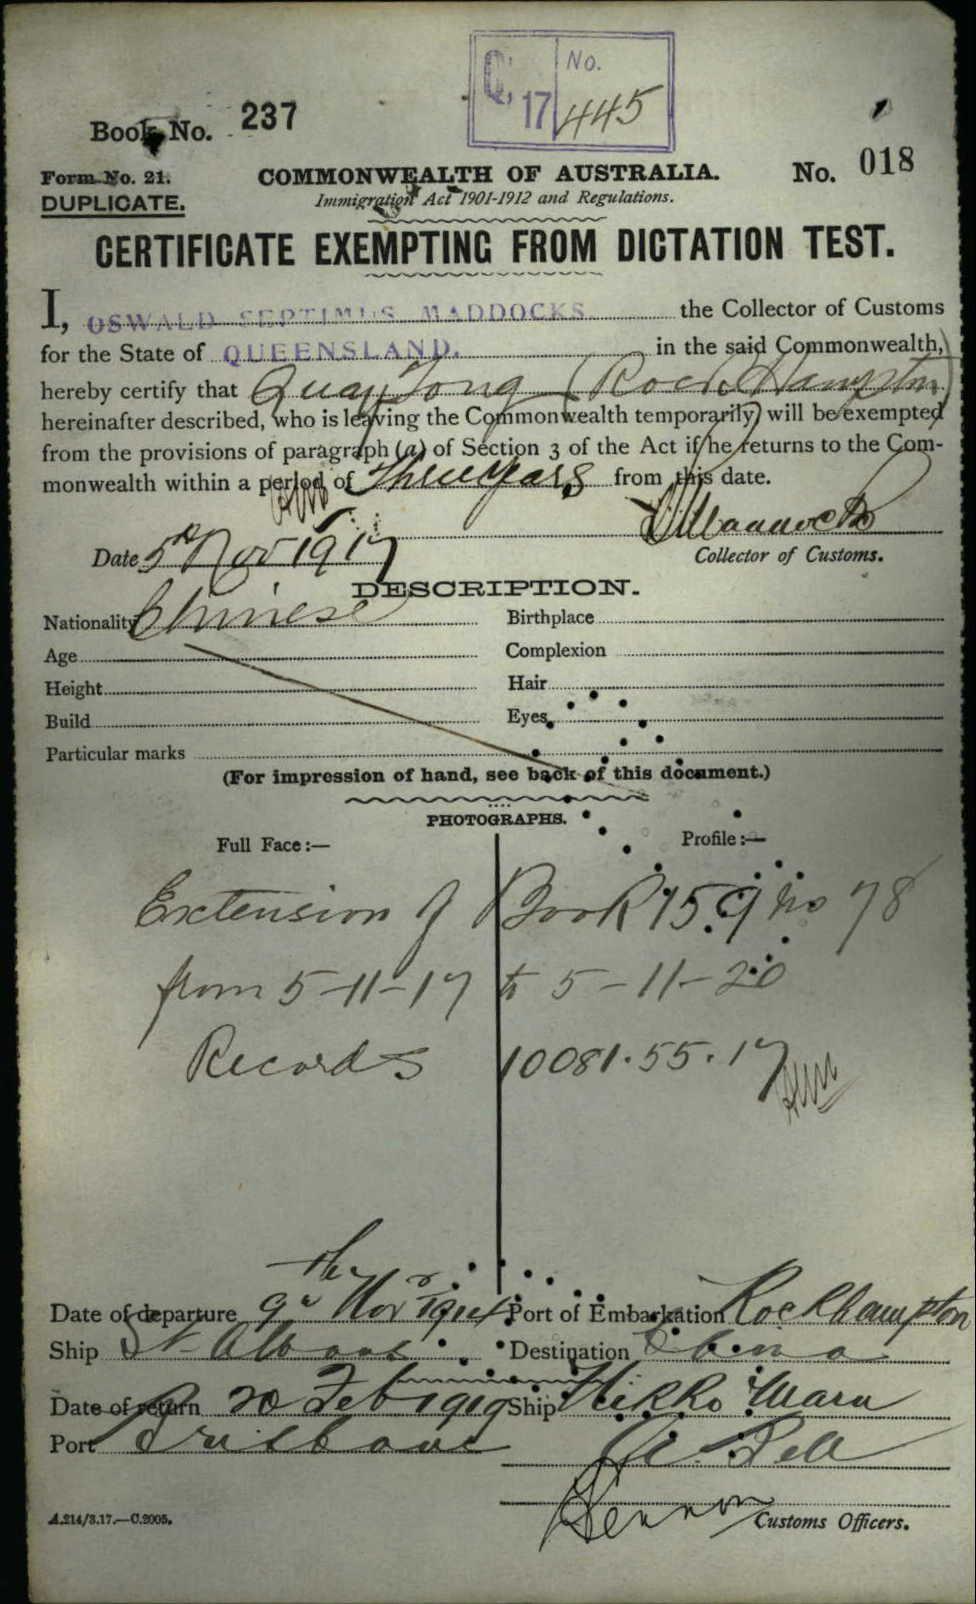 Q, 17 No. 445
Book No. 237
Form No. 21.
COMMONWEALTH OF AUSTRALIA.
No. 018
DUPLICATE.
Immigration Act 1901-1912 and Regulations.
CERTIFICATE EXEMPTING FROM DICTATION TEST.
I, OSWALD SEPTIMUS MADDOCKS. the Collector of Customs
for the State of QUEENSLAND. in the said Commonwealth,
hereby certify that Quay Tong (Rockhampton)
hereinafter described, who is leaving the Commonwealth temporarily, will be exempted
from the provisions of paragraph (a) of Section 3 of the Act if he returns to the Com-
monwealth within a period of Three years from this date.
Date 5th Nov 1917
Collector of Customs.
DESCRIPTION.
Nationality Chinese Birthplace
Age Complexion
Height Hair
Build Eyes
Particular marks
(For impression of hand, see back of this document.)
PHOTOGRAPHS.
Full Face:— Profile:—
Extension of Book 159 No 78
from 5-11-17 to 5-11-20
Records 10081.55.17
Date of departure 9th Novr 1914 Port of Embarkation Rockhampton
Ship St Albans Destination China
Date of return 20 Feb 1919 Ship Nikko Maru
Port Brisbane
A.214/3.17.—C.2005.
Customs Officers.